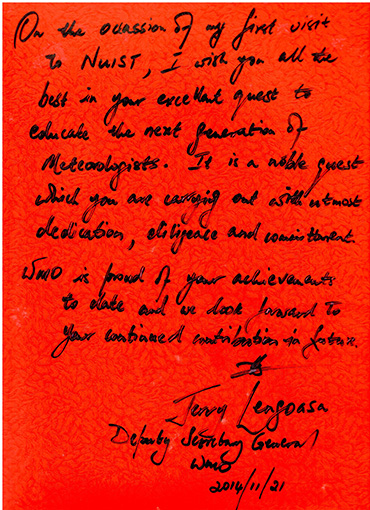 On the ocassion of my first visit
to NUIST, I wish you all the
best in your excellent quest to
educate the next generation of
Meteorologists. It is a noble quest
which you are carrying out with utmost
dedication, diligence and commitment.
WMO is proud of your achievements
to date and we look forward to
your continued contribution in future.
Jerry Lengoasa
Deputy Secretary General
WMO
2014/11/21